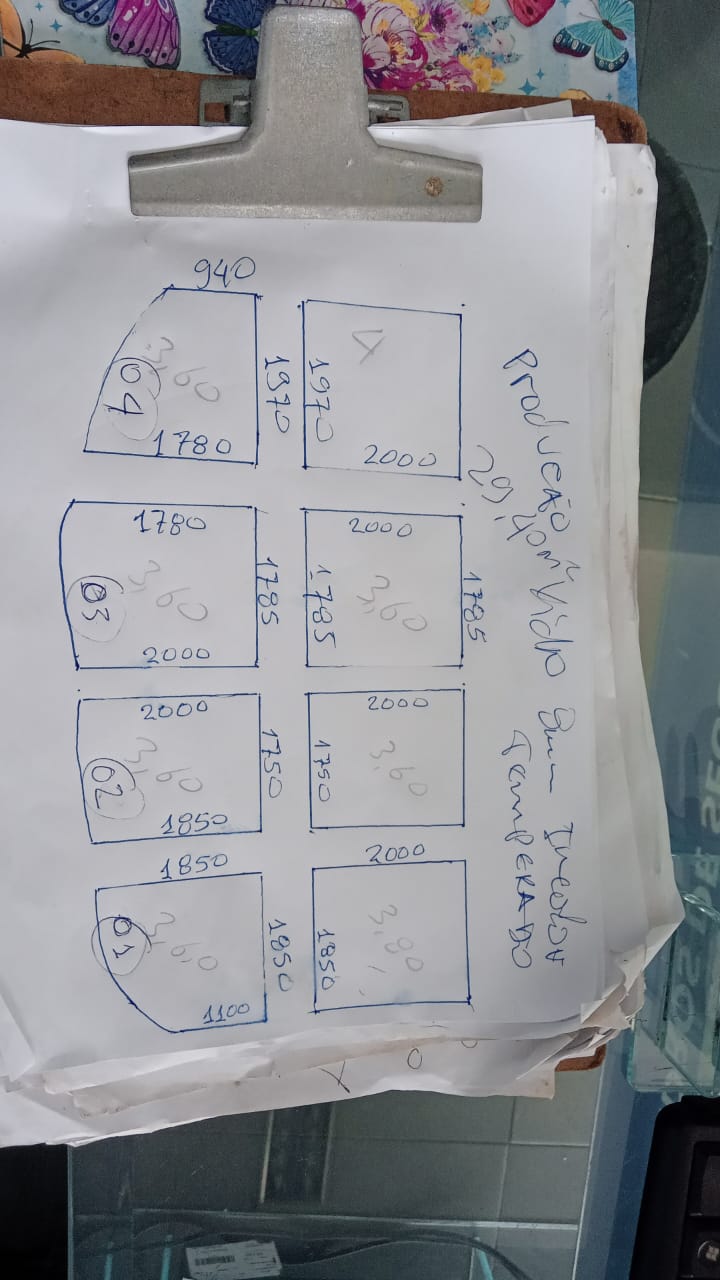 Produção Vidro 8mm Incolor
29,40m² Temperado
940
3,60
04
1780
1970
4
1970
2000
1780
3,60
03
2000
1785
2000
3,60
1785
1785
2000
3,60
02
1850
1750
2000
3,60
1750
1850
3,60
01
1100
1850
2000
3,80
1850